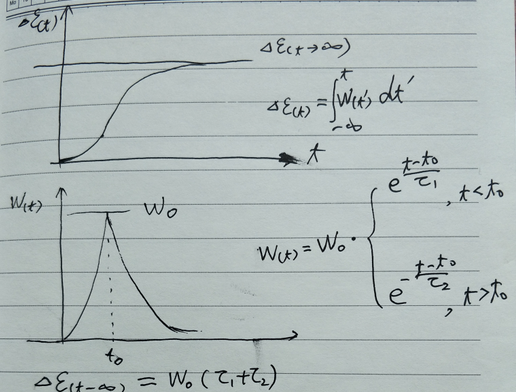 Δε(t)
Δε(t→∞)
Δε(t) = ∫_{-∞}^{t} W(t') dt'
t
W(t)
W₀
W(t) = W₀ · { e^{\frac{t-t₀}{τ₁}}, t<t₀
e^{-\frac{t-t₀}{τ₂}}, t>t₀
t₀
Δε(t→∞) = W₀ (τ₁+τ₂)